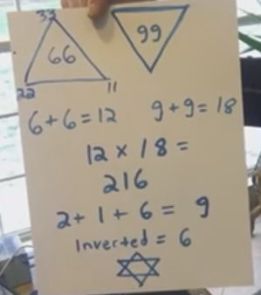 33
66
99
22
11
6+6=12
9+9=18
12 x 18 =
216
2+1+6 = 9
Inverted = 6